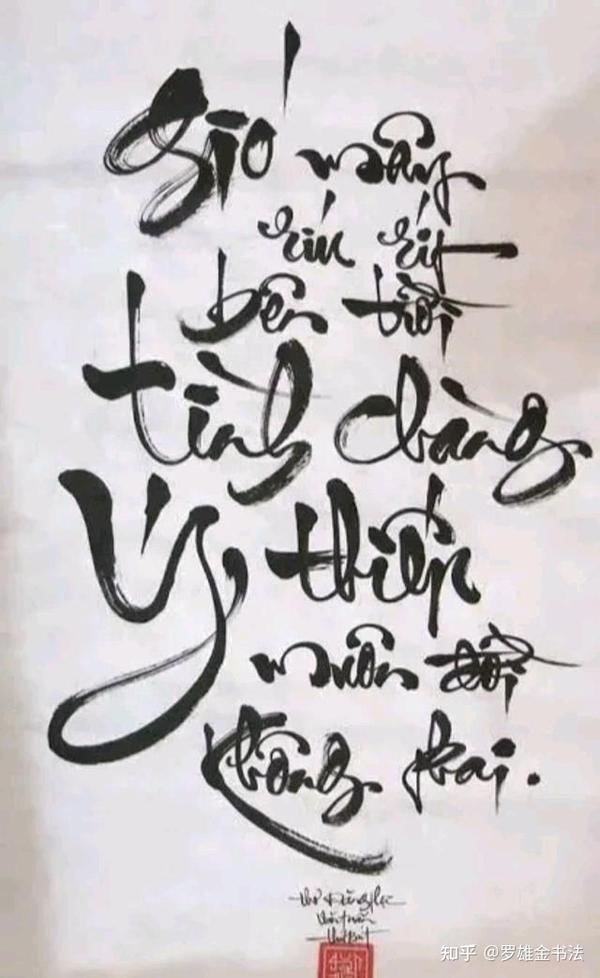 Gió mây
ríu rít
bên trời
tình chàng
Ý thiếp
muôn đời
không phai.
知乎 @罗雄金书法